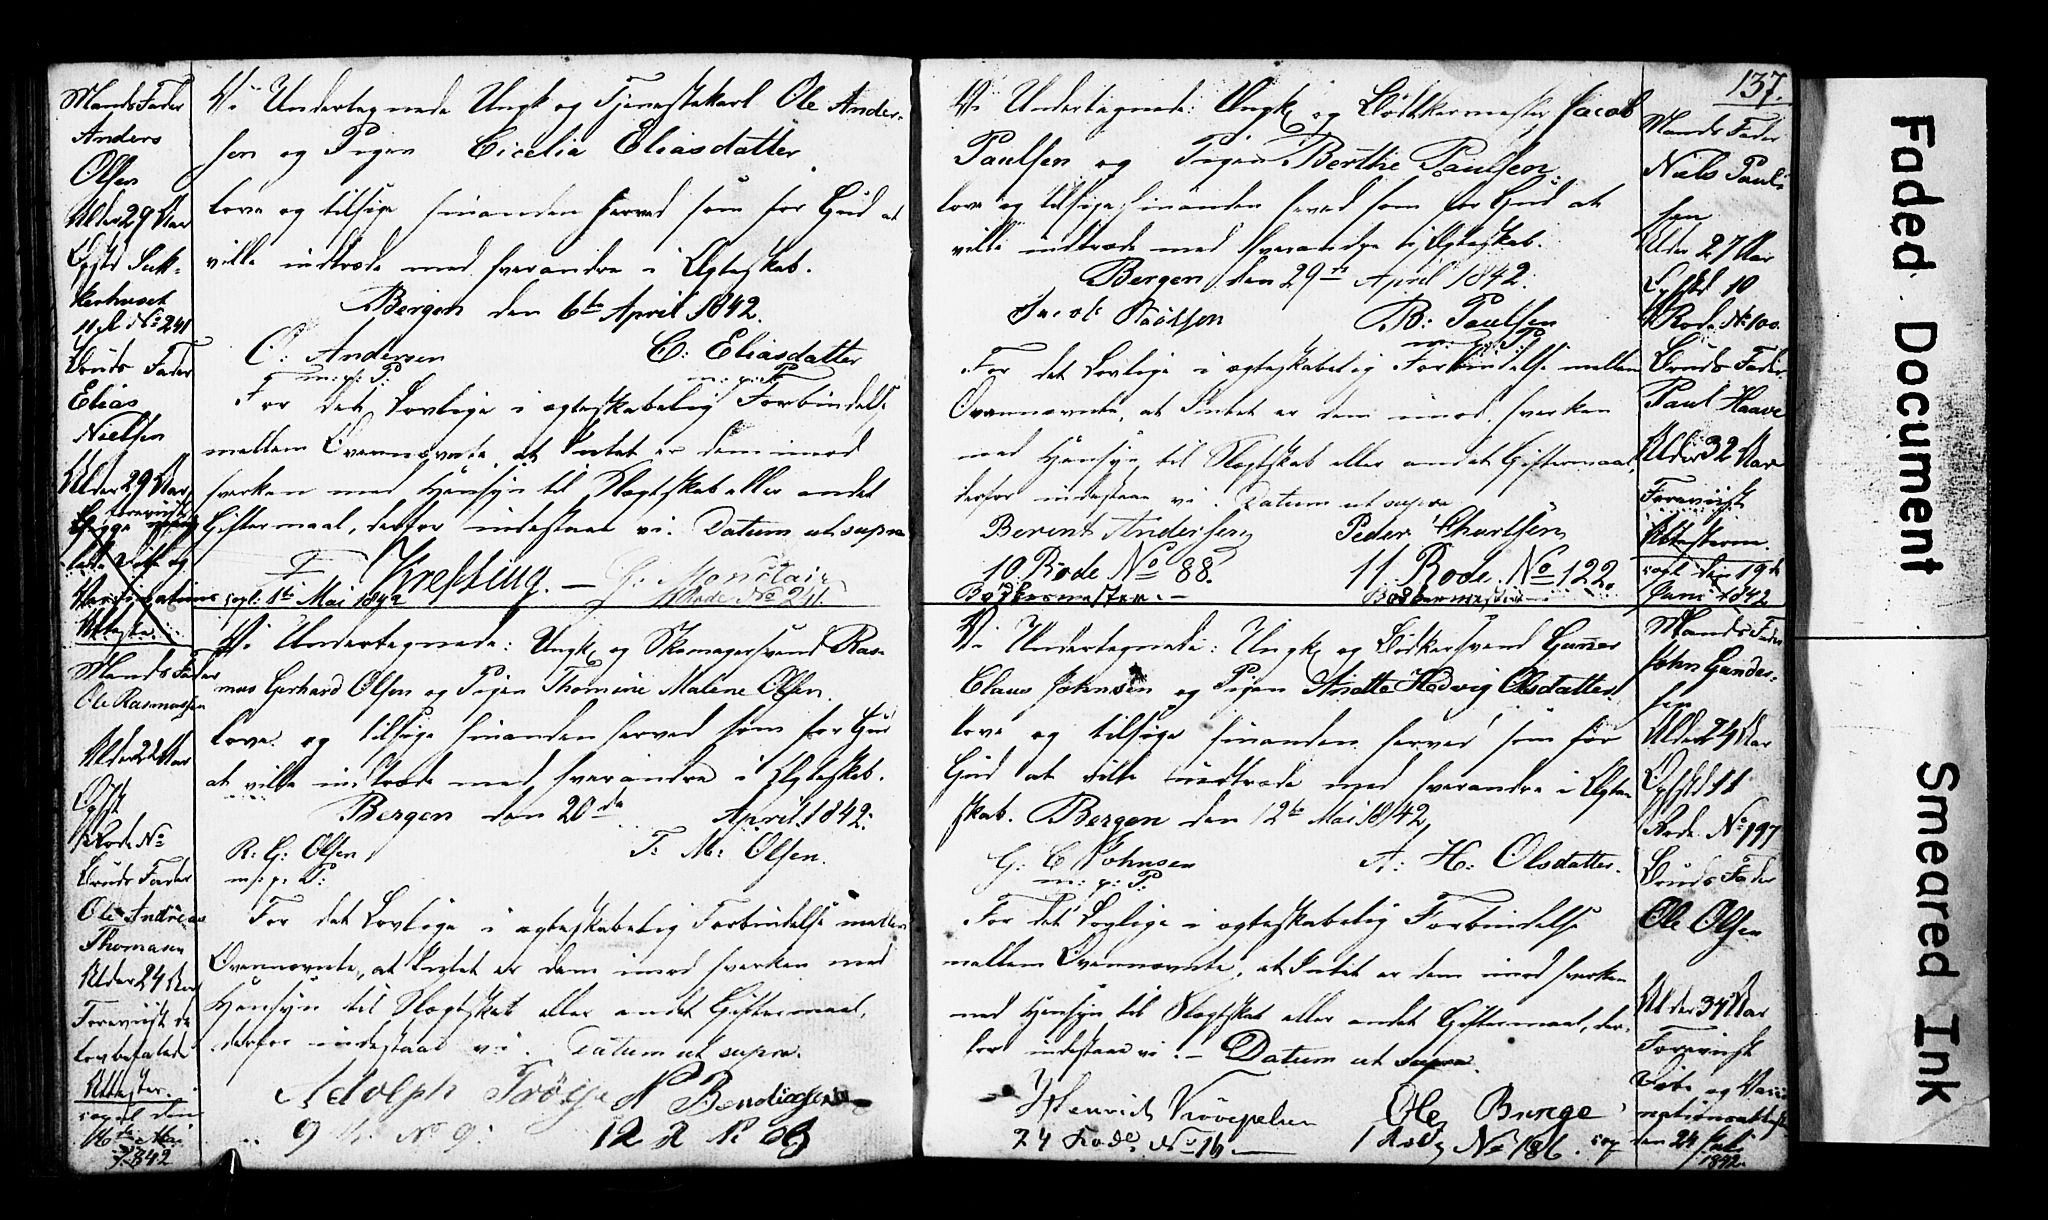 Mands Fader
Anders
Olsen
Alder 29 Aar
Opst Suk-
kerhuset
11 R No 241
Bruds Fader
Elias
Nielsen
Alder 29 Aar
Foreviist
Begge
Vaccinations
Attester
Vi Undertegnede Ungk og Tjenestekarl Ole Ander-
sen og Pigen Cicelia Eliasdatter
love og tilsige hinanden herved som for Gud at
ville indtræde med hverandre i Ægteskab.
Bergen den 6te April 1842.
O: Andersen C: Eliasdatter
m: p: P: m: p: P:
For det Lovlige i ægteskabelig Forbindelse
mellem Ovennævnte, at Intet er dem imod
hverken med Hensyn til Slægtskab eller andet
Giftermaal, derfor indestaae vi. Datum ut supra
F Krefting. — G: Monclair
copl: 1te Mai 1842 11 Rode No 241.
Mands Fader
Ole Rasmussen
Alder 22 Aar
Opst
Rode No
Bruds Fader
Ole Andreas
Thomasen
Alder 24 Aar
Foreviist de
lovbefalede
Attester.
copul den
16de Mai
1842
Vi Undertegnede: Ungk og Skomagersvend Ras-
mus Gerhard Olsen og Pigen Thomine Malene Olsen.
love og tilsige hinanden herved som for Gud
at ville indtræde med hverandre i Ægteskab.
Bergen den 20de April 1842.
R: G: Olsen T: M: Olsen.
m: p: P:
For det Lovlige i ægteskabelig Forbindelse mellem
Ovennævnte, at Intet er dem imod hverken med
Hensyn til Slægtskab eller andet Giftermaal,
derfor indestaae vi. Datum ut supra.
Adolph Tröije N Bendixsen
9 R. No 9: 12 R No 63
137.
Vi Undertegnede: Ungk og Bödkkermester Jacob
Paulsen og Pigen Berthe Paulsen.
love og tilsige hinanden herved som for Gud at
ville indtræde med hverandre i Ægteskab.
Bergen den 29de April 1842.
Jacob Paulsen B: Paulsen
m: p: P:
For det Lovlige i ægteskabelig Forbindelse mellem
Ovennævnte, at Intet er dem imod hverken
med Hensyn til Slægtskab eller andet Giftermaal,
derfor indestaae vi. Datum ut supra
Berent Andersen Peder Thorlsen
10 Rode No 88. 11 Rode No 122.
Bødkermester. — Bødkermester —
Mands Fader
Niels Paul-
sen
Alder 27 Aar
Opsted 10
Rode No 100
Bruds Fader
Paul Haave
Alder 32 Aar
Foreviist
Attesterne.
copl den 19de
Juni 1842
Vi Undertegnede: Ungk og Bödkersvend Gunner
Claus Johnsen og Pigen Anette Hedvig Olsdatter
love og tilsige hinanden herved som for
Gud at ville indtræde med hverandre i Ægte-
skab. Bergen den 12te Mai 1842
G: C Johnsen A: H: Olsdatter.
m: p: P:
For det Lovlige i ægteskabelig Forbindelse
mellem Ovennævnte, at Intet er dem imod hverken
med Hensyn til Slægtskab eller andet Giftermaal, der-
for indestaae vi. — Datum ut supra.
Henrich Ole Bunge
24 Rode No 16 — 1 Rode No 186. cop
Mands Fader
John Gunder-
sen
Alder 24 Aar
Opsted 11
Rode No 197
Bruds Fader
Ole Olsen
Alder 34 Aar
Foreviist
Döbe og Vacci-
nationsattest
den 24 Juli
1842.
Faded Document
Smeared Ink